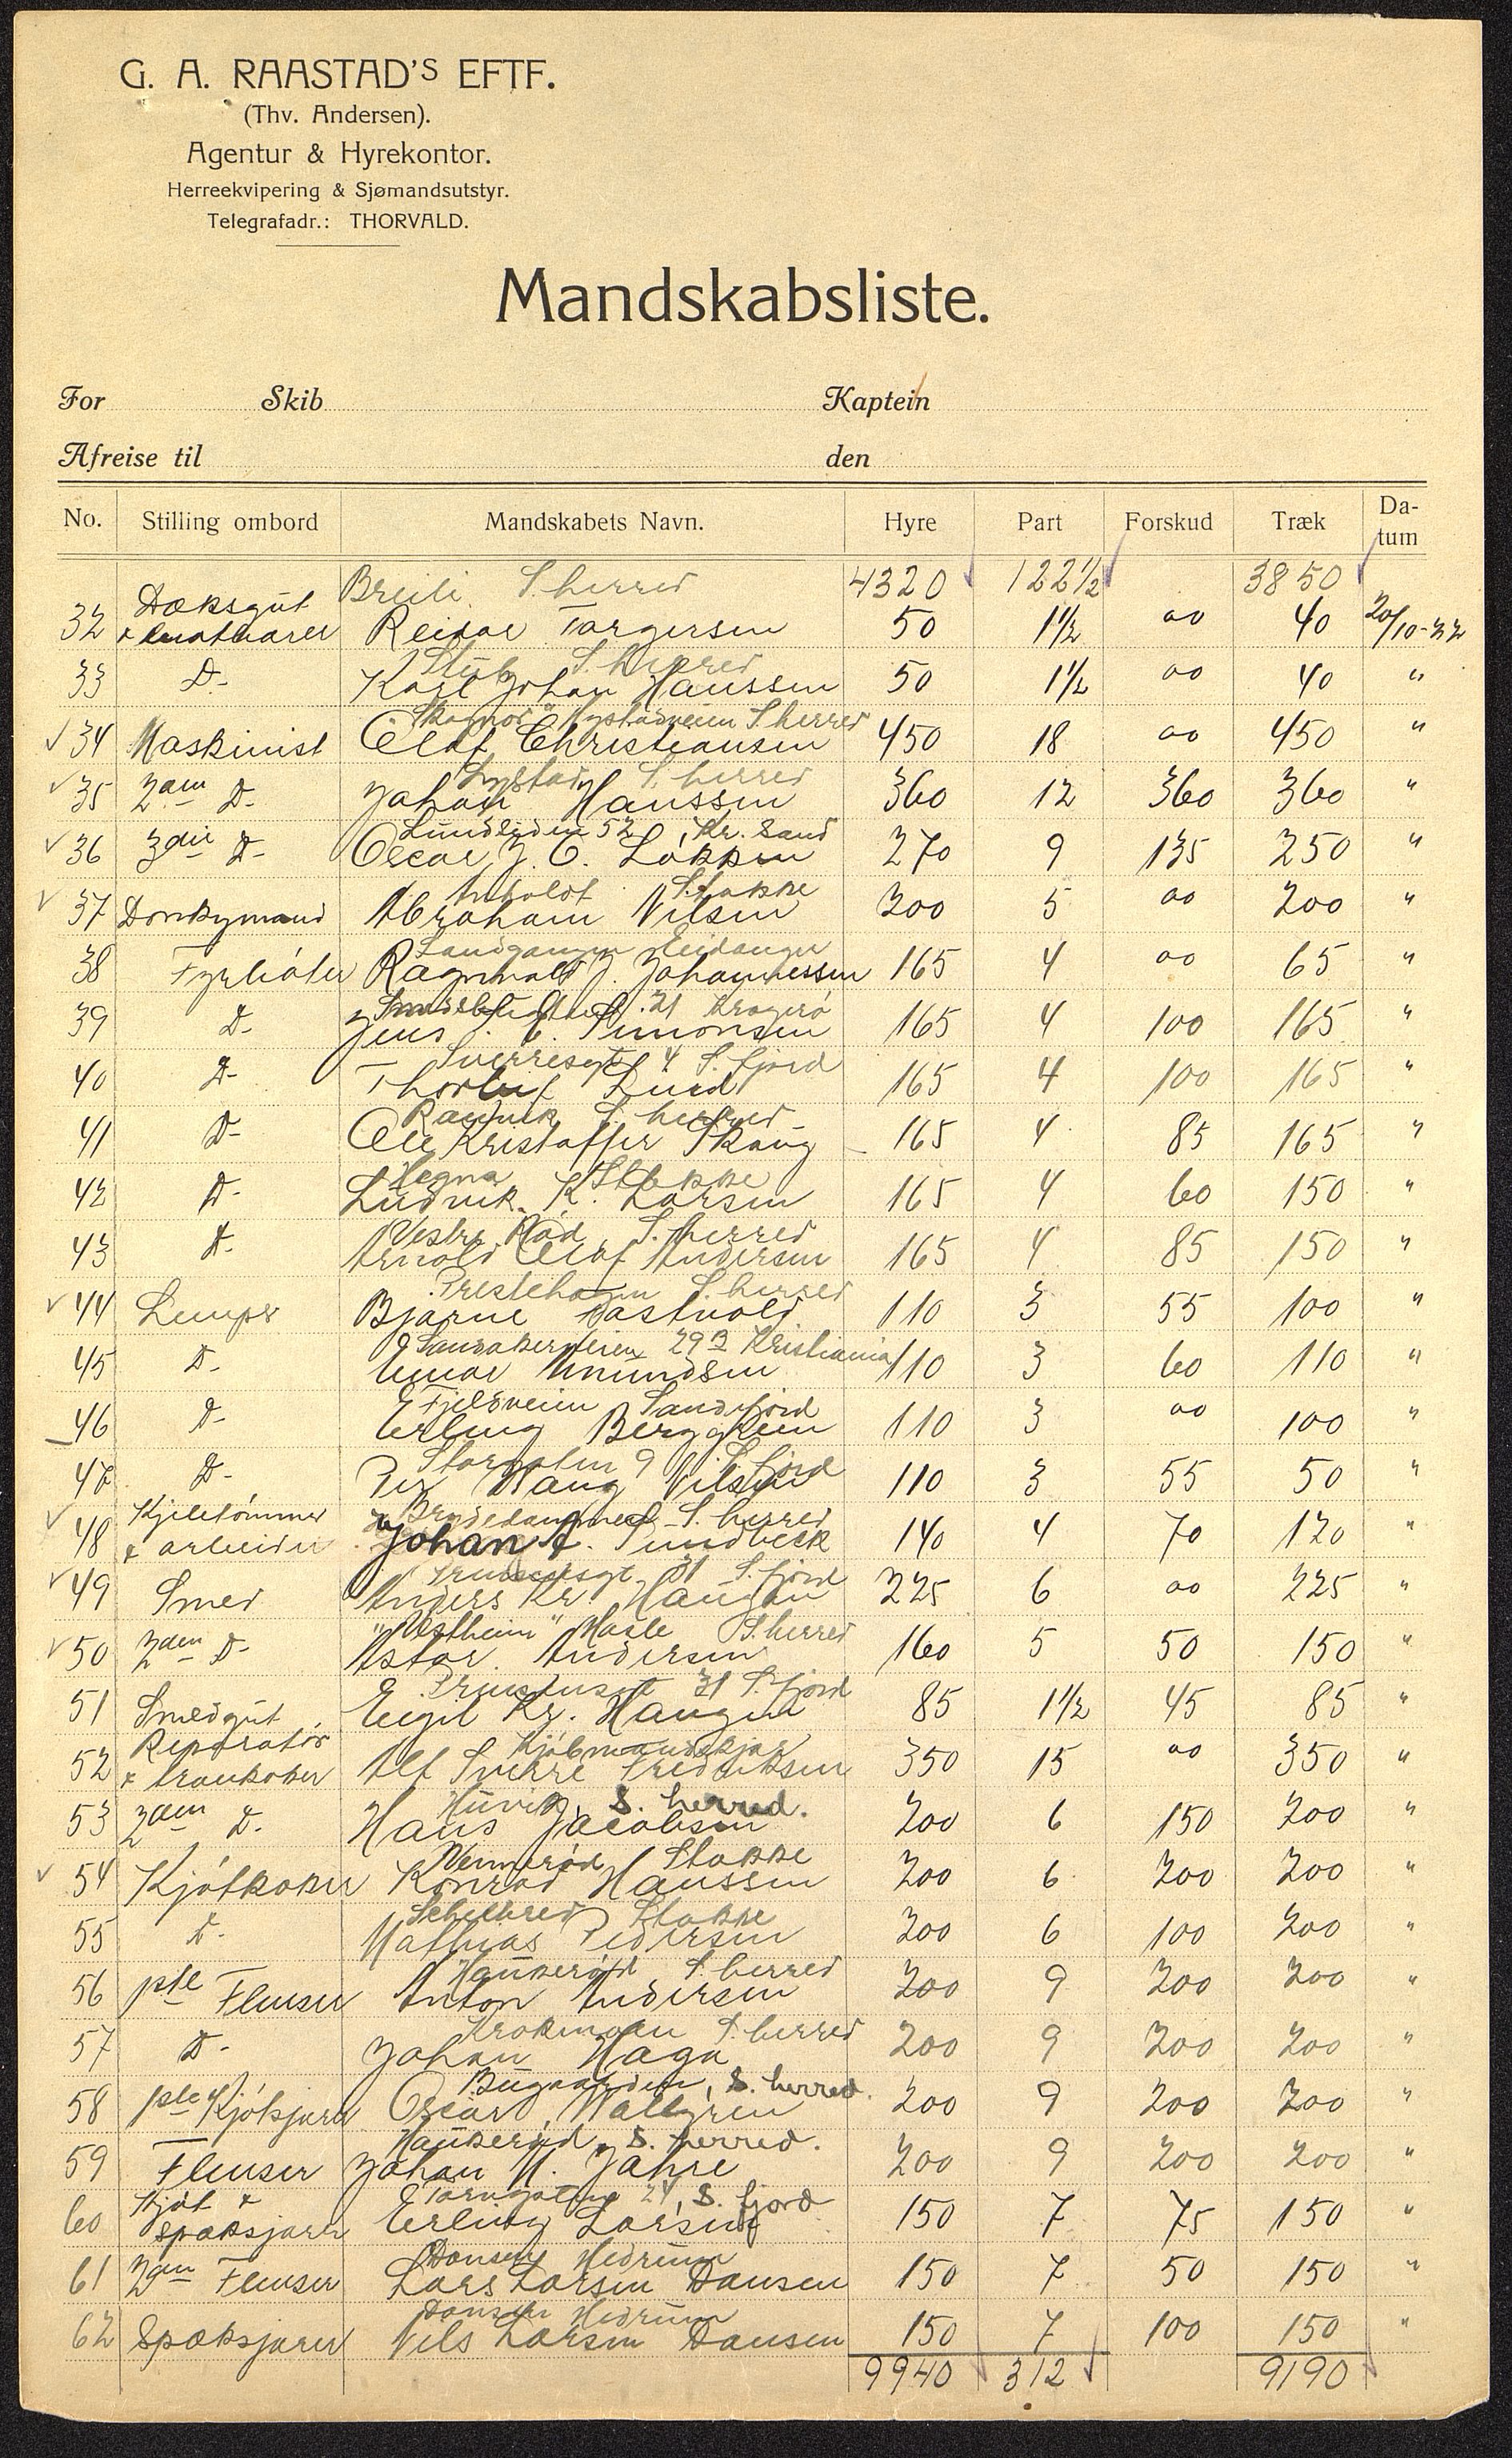 G. A. RAASTAD'S EFTF.
(Thv. Andersen).
Agentur & Hyrekontor.
Herreekvipering & Sjømandsutstyr.
Telegrafadr.: THORVALD.
Mandskabsliste.
For Skib Kaptein
Afreise til den
No. Stilling ombord Mandskabets Navn. Hyre Part Forskud Træk Da-
tum
4320 122½ 3850
Dæksgut Breili S. herred
32 Reidar Torgersen 50 1½ oo 40 20/10-22
S. herred
33 D- Karl Johan Hanssen 50 1½ oo 40 "
Nystadveien S. herred
34 Maskinist Olaf Christiansen 450 18 oo 450 "
S. herred
35 2den D- Johan Hanssen 360 12 360 360 "
52 Kr. Sand
36 3die D- Oscar J. C. Løkken 270 9 135 250 "
Stokke
37 Donkymand Abraham Nilsen 200 5 oo 200 "
Landgangen Eidanger
38 Fyrbøter Ragnvald J. Johannessen 165 4 oo 65 "
21 Kragerø
39 D- Jens C. Simonsen 165 4 100 165 "
Sverresgt 4 S. fjord
40 D- Thorleif Lund 165 4 100 165 "
Ranvik S. herred
41 D- Ole Kristoffer Skaug 165 4 85 165 "
Hegna Stokke
42 D- Ludvik K. Larsen 165 4 60 150 "
Vestre Rød S. herred
43 D- Arnold Olaf Andersen 165 4 85 150 "
Prestehagen S. herred
44 Lemper Bjarne 110 3 55 100 "
Sandakerveien 29B Kristiania
45 D- Einar Amundsen 110 3 60 110 "
Fjeldveien Sandefjord
46 D- Erling Berggren 110 3 oo 100 "
Storgaten 9 S. fjord
47 D- Per Haug Nilsen 110 3 55 50 "
Kjeletømmer S. herred
48 & arbeider Johan A. Sundbeck 140 4 70 120 "
31 S. fjord
49 Smed Anders Kr. Haugen 225 6 oo 225 "
"Vestheim" Hasle S. herred
50 2den D- Astor Andersen 160 5 50 150 "
31 S. fjord
51 Smedgut Eigil Kr. Haugen 85 1½ 45 85 "
Reparatør Kjøbmandskjær
52 & trankoker Alf Sverre Fredriksen 350 15 oo 350 "
Huvik, S. herred.
53 2den D- Hans Jacobsen 200 6 150 200 "
Vennerød Stokke
54 Kjøtkoker Konrad Hanssen 200 6 200 200 "
Stokke
55 D- Mathias Pedersen 200 6 100 200 "
Haukerød S. herred
56 1ste Flenser Anton Andersen 200 9 200 200 "
Krokmoen S. herred
57 D- Johan Haga 200 9 200 200 "
Bugaarden, S. herred.
58 1ste Kjøtsjærer Oscar Wallgren 200 9 200 200 "
Haukerød, S. herred.
59 Flenser Johan A. Jahre 200 9 200 200 "
Kjøt & 24, S. fjord
60 spæksjærer Erling Larsen 150 7 75 150 "
Donsen Hedrum
61 2den Flenser Lars Larsen Dansen 150 7 50 150 "
Donsen Hedrum
62 Spæksjærer Nils Larsen Dansen 150 7 100 150 "
9940 312 9190